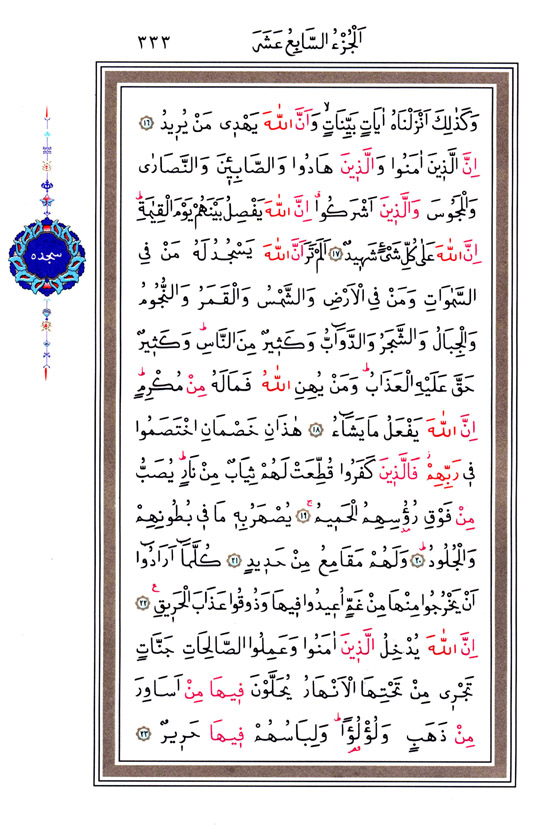 اَلْجُزْءُ السَّابِعُ عَشَرَ
٣٣٣
وَكَذٰلِكَ اَنْزَلْنَاهُ اٰيَاتٍ بَيِّنَاتٍۙ وَاَنَّ اللّٰهَ يَهْد۪ي مَنْ يُر۪يدُ ﴿١٦﴾
اِنَّ الَّذ۪ينَ اٰمَنُوا وَالَّذ۪ينَ هَادُوا وَالصَّابِـ۪ٔينَ وَالنَّصَارٰى
وَالْمَجُوسَ وَالَّذ۪ينَ اَشْرَكُواۗ اِنَّ اللّٰهَ يَفْصِلُ بَيْنَهُمْ يَوْمَ الْقِيٰمَةِۜ
اِنَّ اللّٰهَ عَلٰى كُلِّ شَيْءٍ شَه۪يدٌ ﴿١٧﴾ اَلَمْ تَرَ اَنَّ اللّٰهَ يَسْجُدُ لَهُ مَنْ فِي
سجده
السَّمٰوَاتِ وَمَنْ فِي الْاَرْضِ وَالشَّمْسُ وَالْقَمَرُ وَالنُّجُومُ
وَالْجِبَالُ وَالشَّجَرُ وَالدَّوَٓابُّ وَكَث۪يرٌ مِنَ النَّاسِۜ وَكَث۪يرٌ
حَقَّ عَلَيْهِ الْعَذَابُۜ وَمَنْ يُهِنِ اللّٰهُ فَمَا لَهُ مِنْ مُكْرِمٍۜ
اِنَّ اللّٰهَ يَفْعَلُ مَا يَشَٓاءُ ﴿١٨﴾ هٰذَانِ خَصْمَانِ اخْتَصَمُوا
ف۪ي رَبِّهِمْۘ فَالَّذ۪ينَ كَفَرُوا قُطِّعَتْ لَهُمْ ثِيَابٌ مِنْ نَارٍۜ يُصَبُّ
مِنْ فَوْقِ رُؤُ۫سِهِمُ الْحَم۪يمُۚ ﴿١٩﴾ يُصْهَرُ بِه۪ مَا ف۪ي بُطُونِهِمْ
وَالْجُلُودُۜ ﴿٢٠﴾ وَلَهُمْ مَقَامِعُ مِنْ حَد۪يدٍ ﴿٢١﴾ كُلَّمَٓا اَرَادُٓوا
اَنْ يَخْرُجُوا مِنْهَا مِنْ غَمٍّ اُع۪يدُوا ف۪يهَا وَذُوقُوا عَذَابَ الْحَر۪يقِ۟ ﴿٢٢﴾
اِنَّ اللّٰهَ يُدْخِلُ الَّذ۪ينَ اٰمَنُوا وَعَمِلُوا الصَّالِحَاتِ جَنَّاتٍ
تَجْر۪ي مِنْ تَحْتِهَا الْاَنْهَارُ يُحَلَّوْنَ ف۪يهَا مِنْ اَسَاوِرَ
مِنْ ذَهَبٍ وَلُؤْلُؤً۬اۜ وَلِبَاسُهُمْ ف۪يهَا حَر۪يرٌ ﴿٢٣﴾